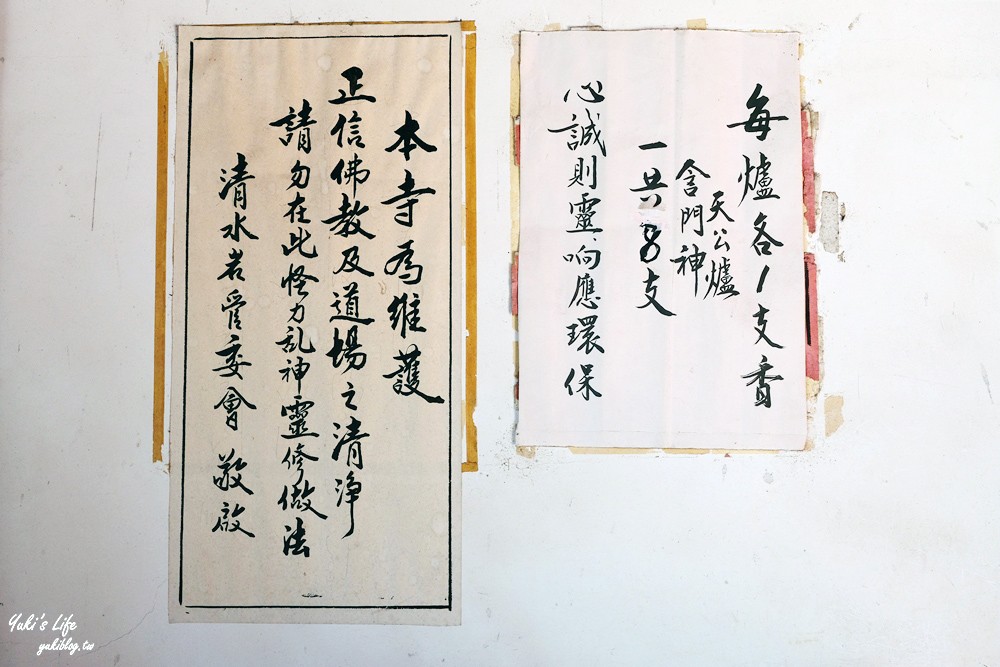 本寺為維護
正信佛教及道場之清淨
請勿在此怪力乱神靈修做法
清水岩管委會 敬啟
每爐各1支香
天公爐
含門神
一共8支
心誠則靈、响應環保
Yuki's Life
yukiblog.tw